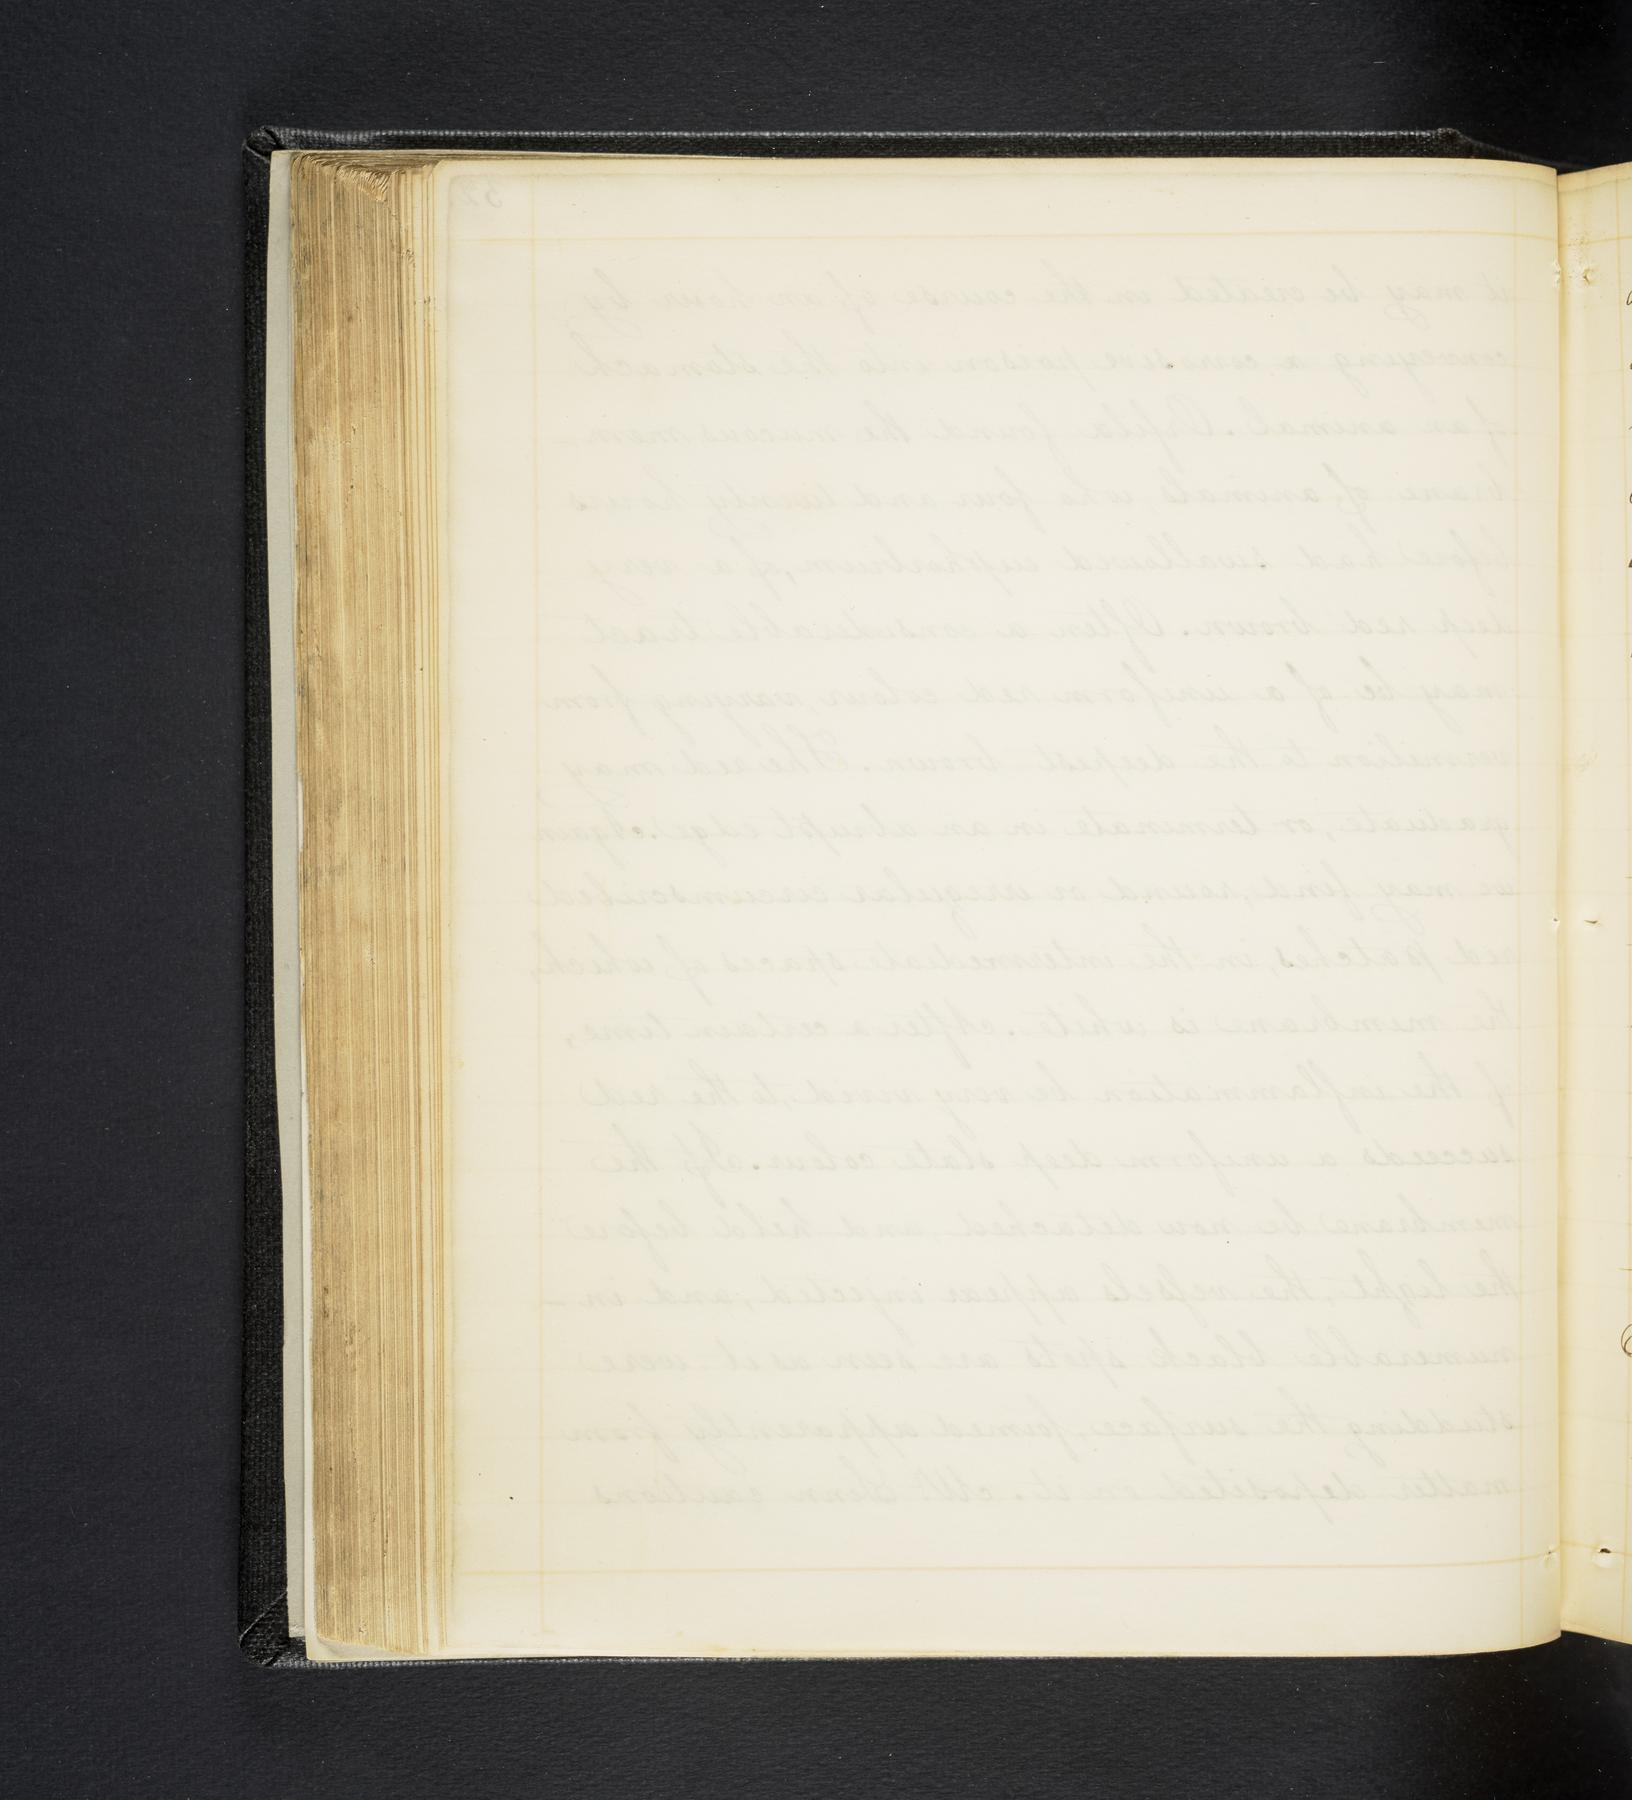 52
it may be created in the course of an hour by
conveying a corrosive poison into the stomach
of an animal. Orfila found the mucous mem-
brane of animals who four and twenty hours
before had swallowed euphorbium, of a very
deep red brown. Often a considerable tract
may be of a uniform red colour, varying from
vermilion to the deepest brown. The red may
graduate, or terminate in an abrupt edge. Again
we may find, round or irregular circumscribed
red patches, in the intermediate spaces of which,
the membrane is white. After a certain time,
if the inflammation be very vivid, to the red
succeeds a uniform deep slate colour. If the
membrane be now detached and held before
the light, the vessels appear injected, and in-
numerable black spots are seen as it were
studding the surface, formed apparently from
matter deposited on it. Mr
cautions